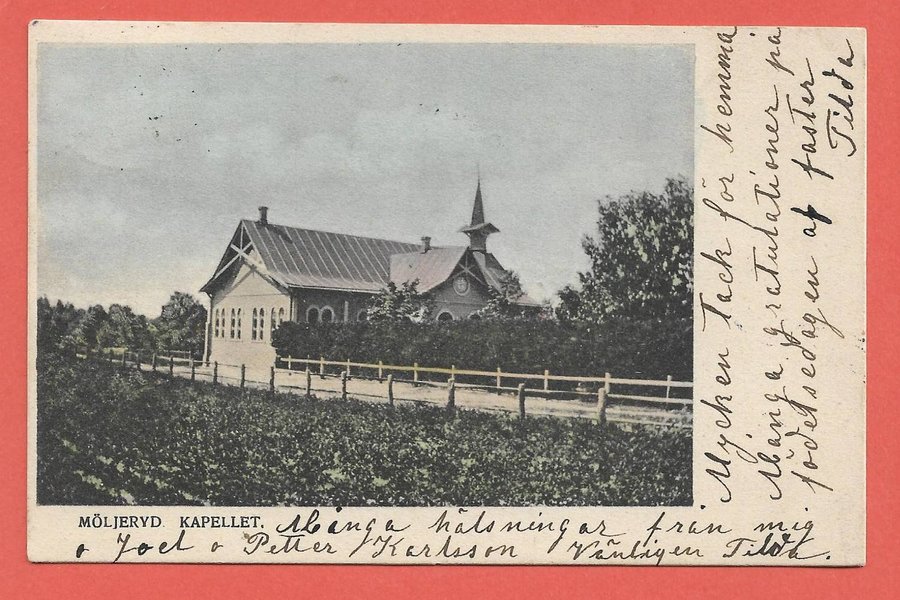 MÖLJERYD KAPELLET.
Många hälsningar från mig
o Joel o Petter Karlsson Vänligen Tilda.
Mycken Tack för hemma
Många gratulationer på
födelsedagen af faster
Tilda